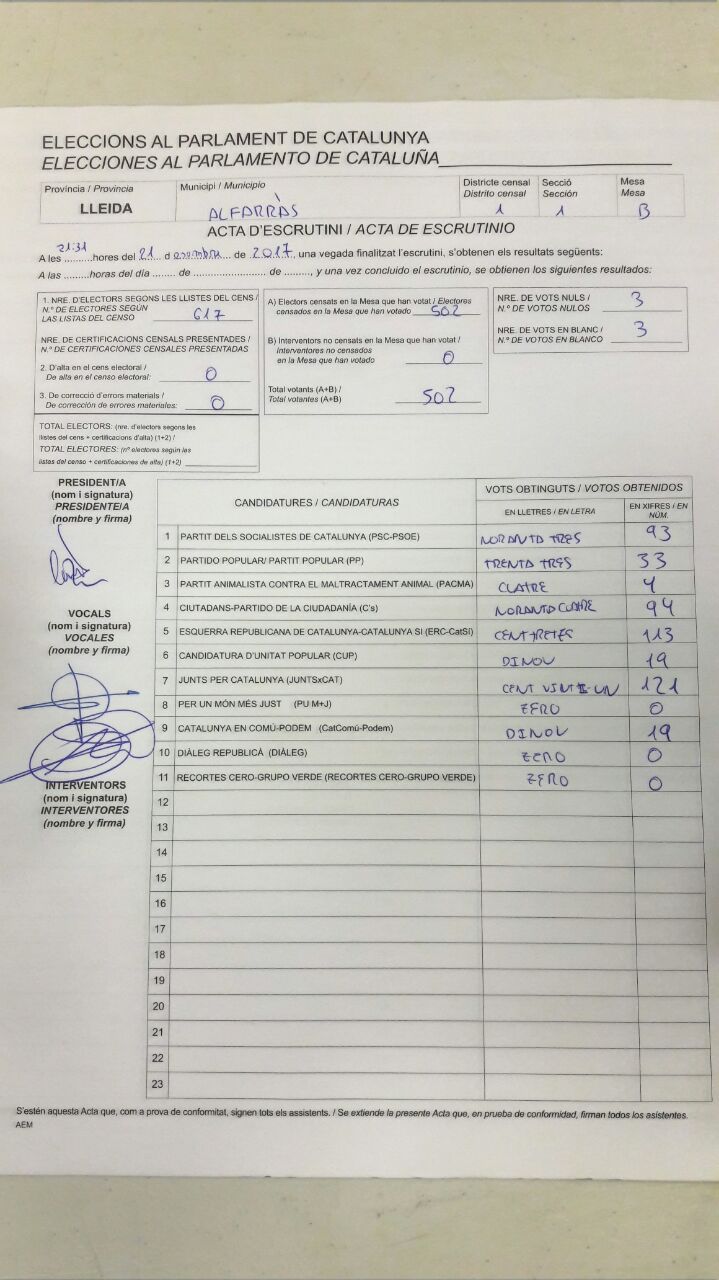 ELECCIONS AL PARLAMENT DE CATALUNYA
ELECCIONES AL PARLAMENTO DE CATALUÑA
Província / Provincia
LLEIDA
Municipi / Municipio
ALFARRÀS
Districte censal
Distrito censal
1
Secció
Sección
1
Mesa
Mesa
B
ACTA D'ESCRUTINI / ACTA DE ESCRUTINIO
A les 21:31 hores del 21 d desembre de 2017, una vegada finalitzat l'escrutini, s'obtenen els resultats següents:
A las .........horas del día ....... de ........................ de ........, y una vez concluido el escrutinio, se obtienen los siguientes resultados:
1. NRE. D'ELECTORS SEGONS LES LLISTES DEL CENS /
N.º DE ELECTORES SEGÚN
LAS LISTAS DEL CENSO 617
NRE. DE CERTIFICACIONS CENSALS PRESENTADES /
N.º DE CERTIFICACIONES CENSALES PRESENTADAS
2. D'alta en el cens electoral /
De alta en el censo electoral: 0
3. De correcció d'errors materials /
De corrección de errores materiales: 0
TOTAL ELECTORS: (nre. d'electors segons les
llistes del cens + certificacions d'alta) (1+2) /
TOTAL ELECTORES: (nº electores según las
listas del censo + certificaciones de alta) (1+2)
A) Electors censats en la Mesa que han votat / Electores
censados en la Mesa que han votado 502
B) Interventors no censats en la Mesa que han votat /
Interventores no censados
en la Mesa que han votado 0
Total votants (A+B) /
Total votantes (A+B) 502
NRE. DE VOTS NULS /
N.º DE VOTOS NULOS 3
NRE. DE VOTS EN BLANC /
N.º DE VOTOS EN BLANCO 3
PRESIDENT/A
(nom i signatura)
PRESIDENTE/A
(nombre y firma)
VOCALS
(nom i signatura)
VOCALES
(nombre y firma)
INTERVENTORS
(nom i signatura)
INTERVENTORES
(nombre y firma)
CANDIDATURES / CANDIDATURAS
VOTS OBTINGUTS / VOTOS OBTENIDOS
EN LLETRES / EN LETRA
EN XIFRES / EN NÚM.
1 PARTIT DELS SOCIALISTES DE CATALUNYA (PSC-PSOE) NORANTA TRES 93
2 PARTIDO POPULAR/ PARTIT POPULAR (PP) TRENTA TRES 33
3 PARTIT ANIMALISTA CONTRA EL MALTRACTAMENT ANIMAL (PACMA) CUATRE 4
4 CIUTADANS-PARTIDO DE LA CIUDADANÍA (C's) NORANTA CUATRE 94
5 ESQUERRA REPUBLICANA DE CATALUNYA-CATALUNYA SÍ (ERC-CatSí) CENT TRETES 113
6 CANDIDATURA D'UNITAT POPULAR (CUP) DINOU 19
7 JUNTS PER CATALUNYA (JUNTSxCAT) CENT VINT-I-UN 121
8 PER UN MÓN MÉS JUST (PU M+J) ZERO 0
9 CATALUNYA EN COMÚ-PODEM (CatComú-Podem) DINOU 19
10 DIÀLEG REPUBLICÀ (DIÀLEG) ZERO 0
11 RECORTES CERO-GRUPO VERDE (RECORTES CERO-GRUPO VERDE) ZERO 0
12
13
14
15
16
17
18
19
20
21
22
23
S'estén aquesta Acta que, com a prova de conformitat, signen tots els assistents. / Se extiende la presente Acta que, en prueba de conformidad, firman todos los asistentes.
AEM